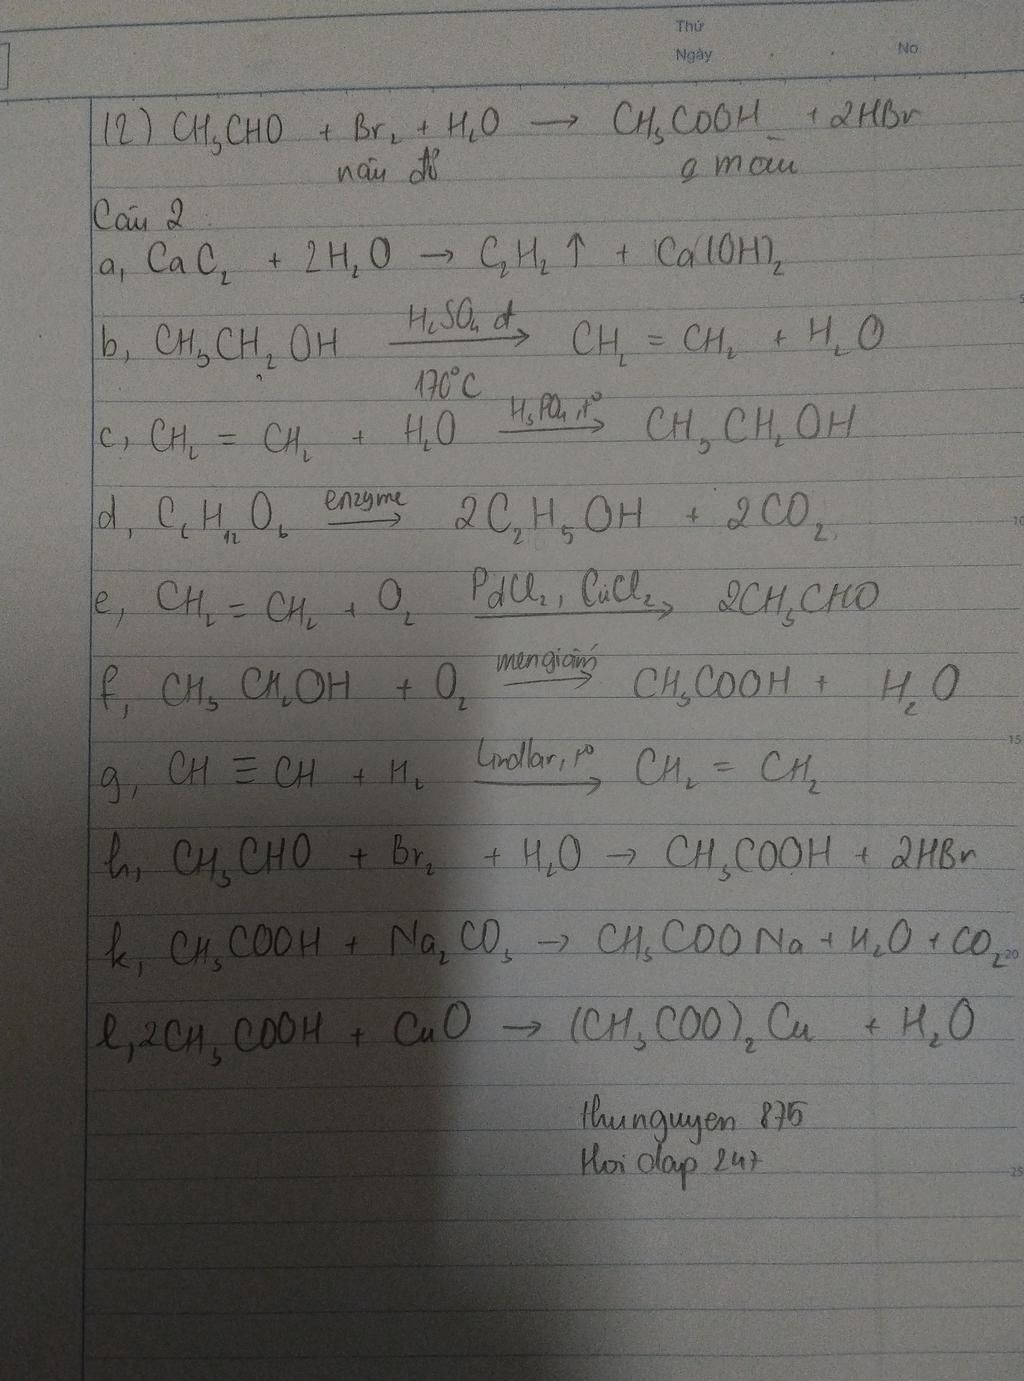 Thứ
Ngày . . No.
(2) CH₃CHO + Br₂ + H₂O → CH₃COOH + 2HBr
nâu đỏ q màu
Câu 2
a, CaC₂ + 2H₂O → C₂H₂ ↑ + Ca(OH)₂
b, CH₃CH₂OH H₂SO₄ đ → 170°C CH₂ = CH₂ + H₂O
c, CH₂ = CH₂ + H₂O H₃PO₄, t° → CH₃CH₂OH
d, C₆H₁₂O₆ enzyme → 2C₂H₅OH + 2CO₂
e, CH₂ = CH₂ + O₂ PdCl₂, CuCl₂ → 2CH₃CHO
f, CH₃CH₂OH + O₂ men giấm → CH₃COOH + H₂O
g, CH ≡ CH + H₂ Lindlar, t° → CH₂ = CH₂
h, CH₃CHO + Br₂ + H₂O → CH₃COOH + 2HBr
k, CH₃COOH + Na₂CO₃ → CH₃COONa + H₂O + CO₂
l, 2CH₃COOH + CuO → (CH₃COO)₂Cu + H₂O
thunguyen 875
Hoi dap 247
5
10
15
20
25